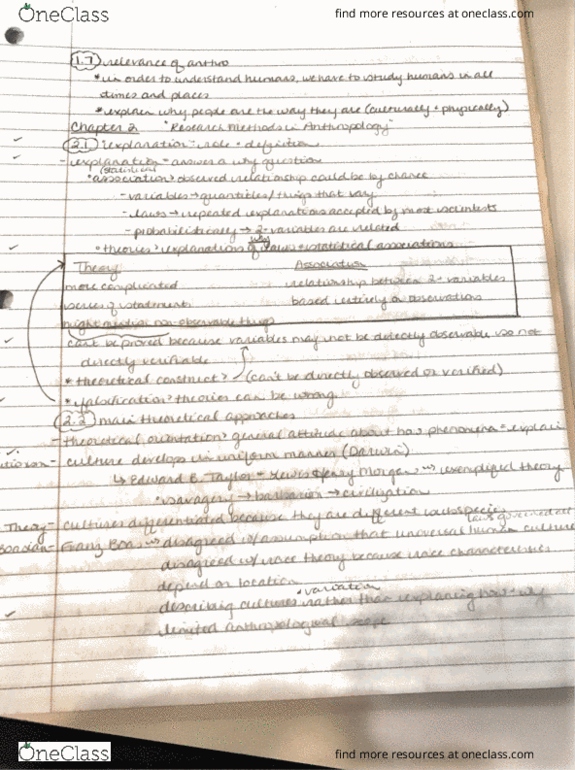 OneClass
find more resources at oneclass.com
1.7 relevance of anthro
* in order to understand humans, we have to study humans in all
times and places
* explain why people are the way they are (culturally + physically)
Chapter 2 "Research Methods in Anthropology"
2.1 explanation - role + definition
- explanation = answer a why question
(statistical)
* association> observed relationship could be by chance
- variables → quantities/things that vary
- laws → repeated explanations accepted by most scientists
- probabilistically → 2+ variables are related
* theories> explanations of why laws + statistical associations
Theory
Association
more complicated
relationship between 2+ variables
series of statements
based entirely on observations
might nonobservable things
can't be proved because variables may not be directly observable so not
directly verifiable
* theoretical construct> (can't be directly observed or verified)
* falsification> theories can be wrong
2.2 main theoretical approaches
- theoretical orientation> general attitude about how phenomena explain
- culture develops in uniform manner (Darwin)
↳ Edward B. Taylor + Lewis Henry Morgan exemplified theory
* savagery → barbarism → civilization
Theory - cultures differentiated because they are different subspecies
Boasian - Franz Boas disagreed w/ assumption that universal laws governed all human culture
disagreed w/ race theory because race characteristics
depend on location
* variation
describing cultures rather than explaining how + why
limited anthropological scope
OneClass
find more resources at oneclass.com